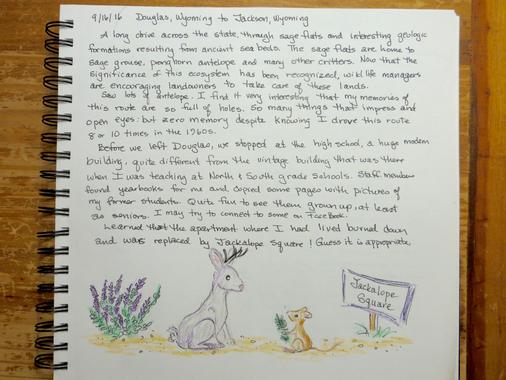 9/16/16 Douglas, Wyoming to Jackson, Wyoming
A long drive across the state, through sage flats and interesting geologic
formations resulting from ancient sea beds. The sage flats are home to
sage grouse, pronghorn antelope and many other critters. Now that the
significance of this ecosystem has been recognized, wild life managers
are encouraging landowners to take care of these lands.
Saw lots of antelope. I find it very interesting that my memories of
this route are so full of holes. So many things that impress and
open eyes: but zero memory despite knowing I drove this route
8 or 10 times in the 1960s.
Before we left Douglas, we stopped at the high school, a huge modern
building, quite different from the vintage building that was there
when I was teaching at North & South grade schools. Staff member
found yearbooks for me and copied some pages with pictures of
my former students. Quite fun to see them grown up, at least
as seniors. I may try to connect to some on FaceBook.
Learned that the apartment where I had lived burned down
and was replaced by Jackalope Square! Guess it is appropriate.
Jackalope
Square